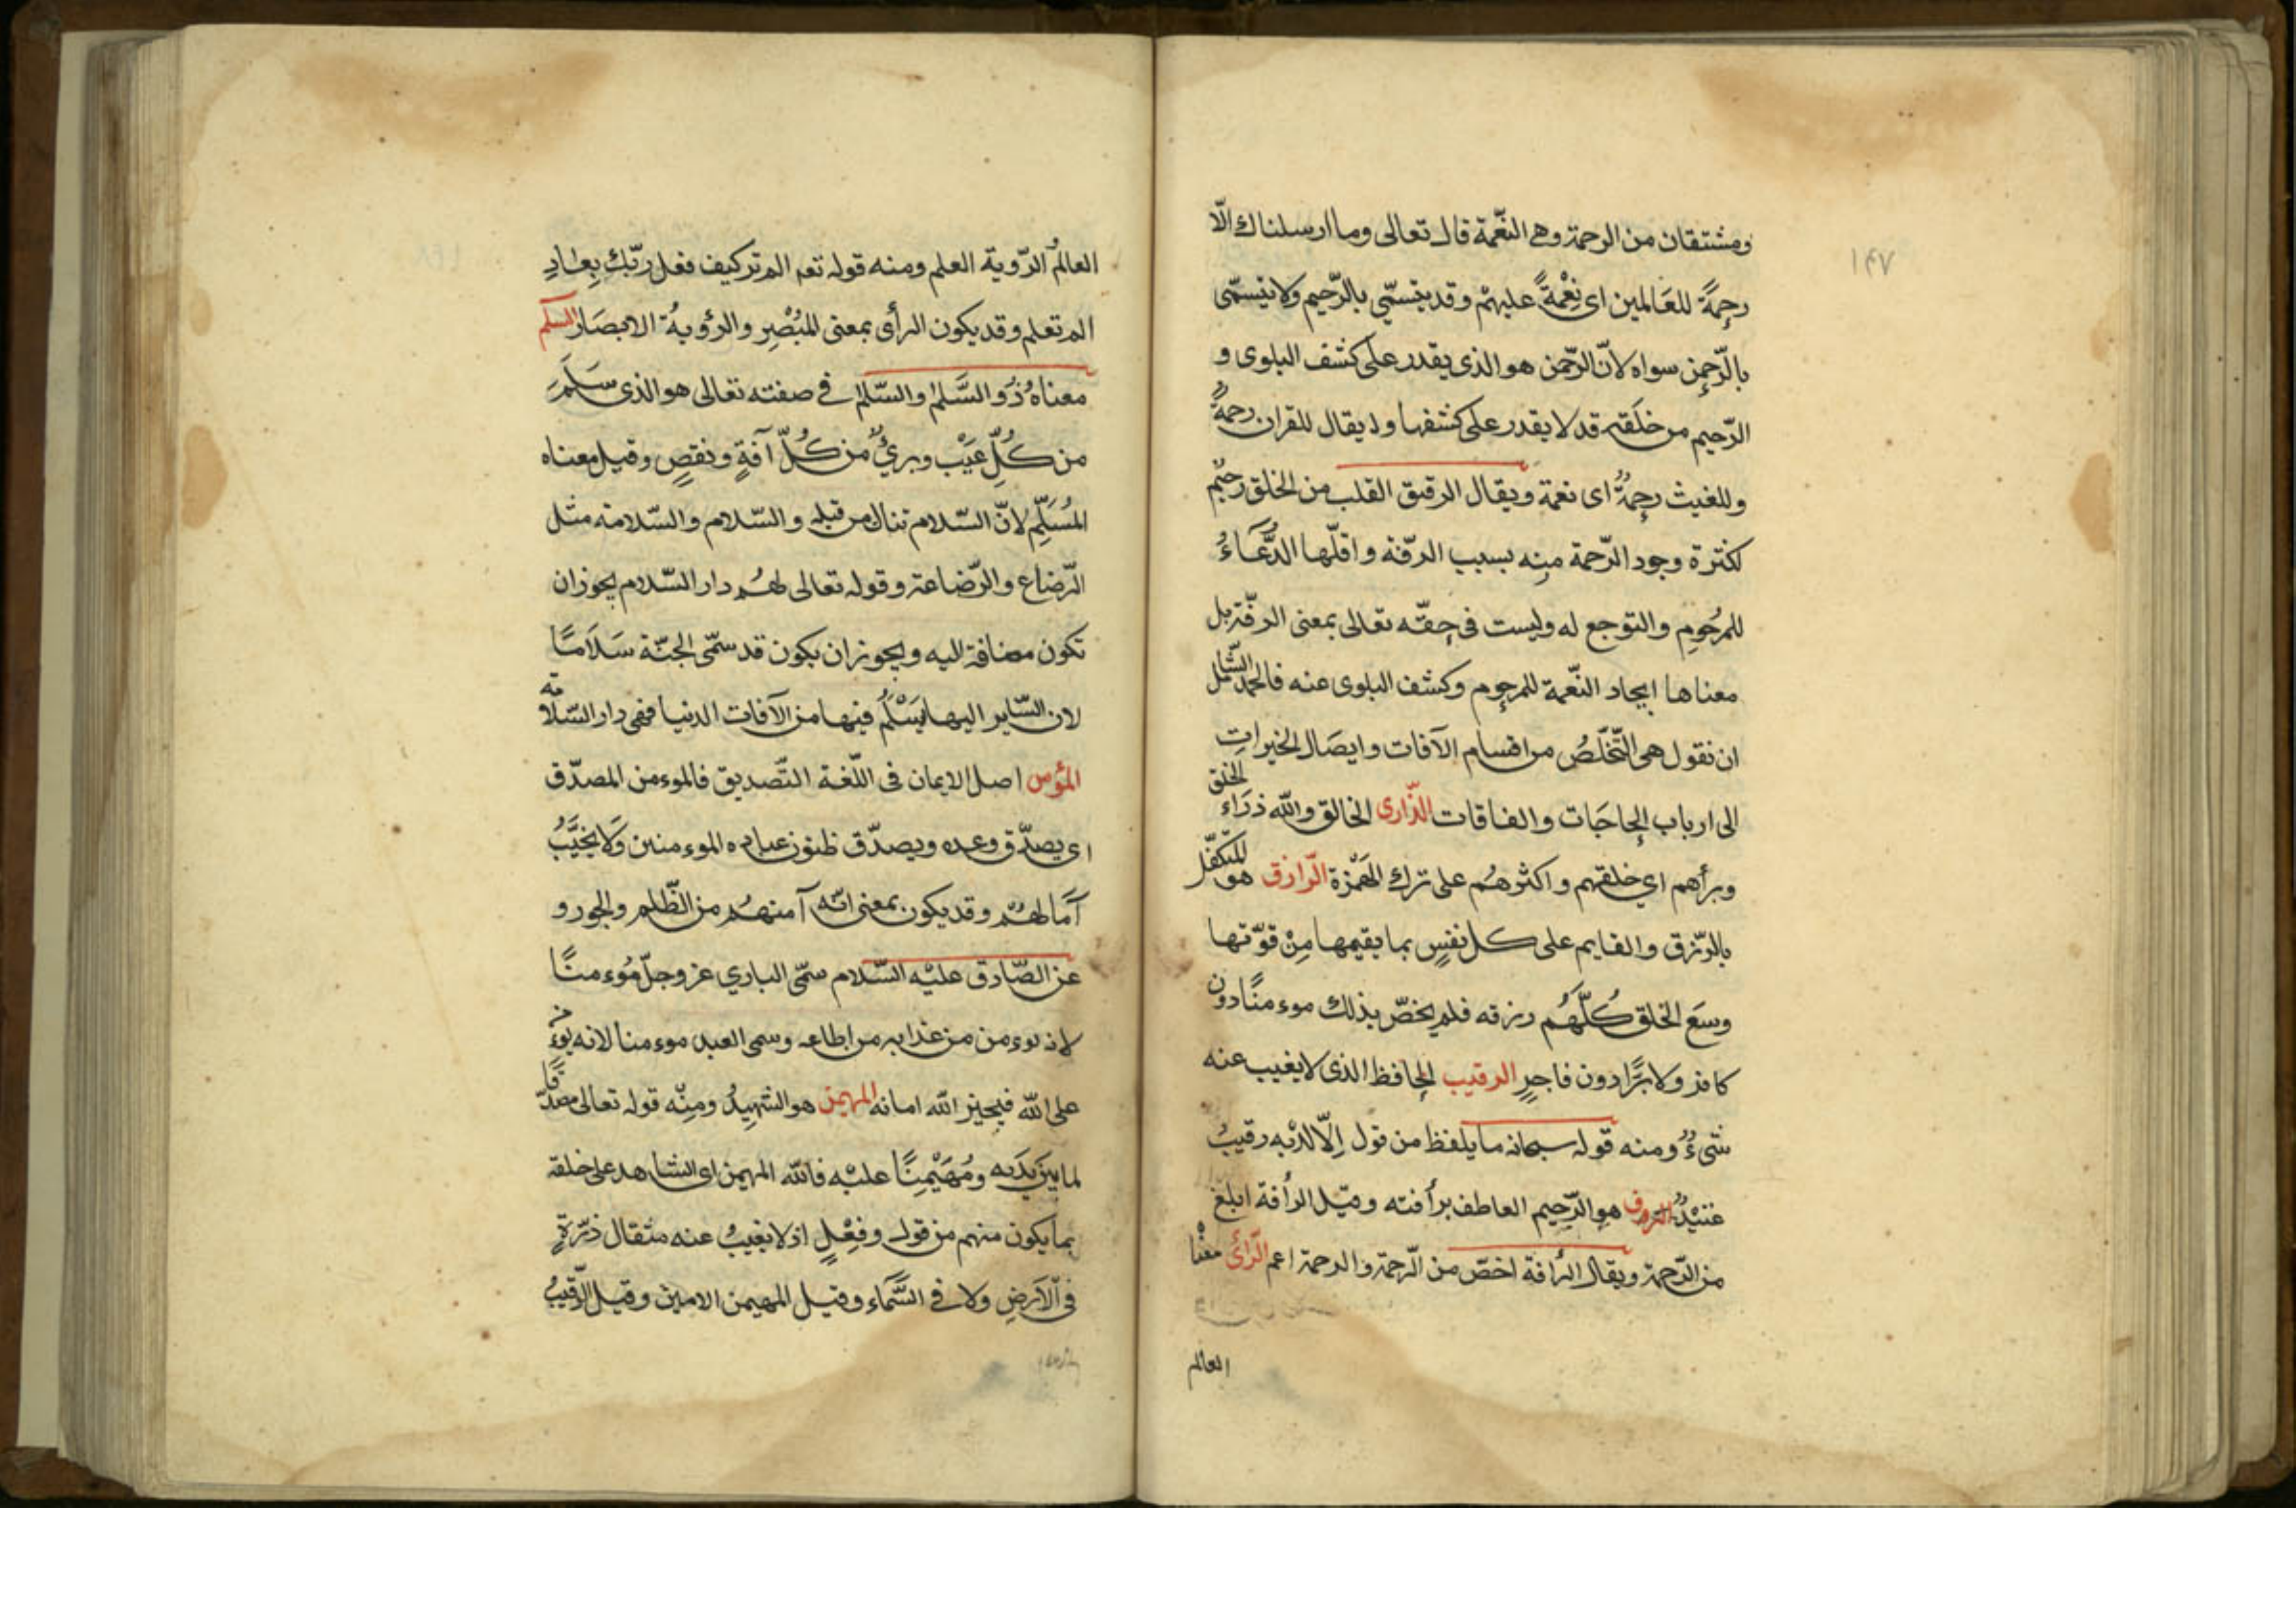 ۱۴۷
ومشتقان من الرحمة وهى النّعمة قال تعالى وما ارسلناك الّا
رحمةً للعَالمين اى نِعْمةً عليهمْ وقد يتسمّي بالرّحيم ولا يتسمّى
بالرّحمن سواه لانّ الرّحمن هو الذى يقدر على كشف البلوى و
الرّحيم من خلقه قد لا يقدر على كشفها و لذ يقال للقران رحمةٌ
وللغيث رحمةٌ اى نعمة ويقال الرقيق القلب من الخلق رحيمٌ
لكثرة وجود الرّحمة منه بسبب الرّقة واقلّها الدُّعَاءُ
للمرحُومِ والتوجع له وليست فى حقّه تعالى بمعنى الرقّة بل
معناها ايجاد النّعمة للمرحوم وكشف البلوى عنه فالحدّ الشّامل
ان نقول هى التّخلّصُ من اقسام الآفات وايصَال الخيراتِ
الى ارباب الحاجَات والفاقات الذّارى الخالق والله ذرَاء الخلق
وبرأهم اي خلقهم و اكثرهُم على ترك الهَمْزة الرّازق هو المتكفّل
بالرّزق والقايم على كل نفسٍ بما يقيمها مِنْ قوّتها
وسعَ الخلق كُلَّهُم رزقه فلم يخصّ بذلك موءمنًا دون
كافر ولا برًّا دون فاجرٍ الرقيب الحافظ الذى لا يغيب عنه
شىءٌ ومنه قوله سبحانه ما يلفظ من قول اِلّا لديْه رقيبٌ
عتيْدٌ الرؤف هو الرّحيم العاطف برأفته وقيل الرأفة ابلغ
من الرّحمة ويقال الرأفة اخصّ من الرّحمة والرحمة اعم الرّائى معْناه
العالم
العالمُ الرّوية العلم ومنه قوله تعم الم تر كيف فعل ربّك بِعادٍ
الم تعلم وقد يكون الرأى بمعنى المُبْصِرِ والرؤويةُ الابصَار السلم
معناهُ ذُو السَّلم والسّلام فى صفته تعالى هو الذى سَلِمَ
من كُلِّ عَيْبٍ وبرىٌ من كُلِّ آفةٍ ونقصٍ وقيل معناه
المُسَلِّم لانّ السّلام تنال من قبله والسّلام والسّلامة مثل
الرّضاع والرّضاعة وقوله تعالى لهُم دار السّلام يجوز ان
تكون مضافة اليه ويجوز ان يكون قد سمّى الجنّة سَلَامًا
لان السّاير اليها يَسْلَمُ فيها من الآفات الدنيا فهى دار السّلامة
المؤمن اصل الايمان فى اللّغة التّصديق فالموءمن المصدّق
اى يصدّق وعده ويصدّق ظنون عباده الموءمنين وَلا يخيّبُ
آمَالهُم وقد يكون بمعنى انّه آمنهُم من الظّلم والجور و
عن الصّادق عليْه السّلام سمّى الباري عز وجلّ مُوءمنًا
لانه يوءمن من عذابه من اطاعه وسمى العبد موءمنا لانه يوءمن
على الله فيجيز الله امانه المهيمن هو الشهِيدُ ومِنْه قوله تعالى مصدّقًا
لما بيَن يدَيه ومُهَيْمِنًا عليْه فالله المهيمن اى الشاهد على خلقه
بما يكون منهم من قول وفِعْلٍ اذ لا يغيبُ عنه مثقال ذرّةٍ
فى الَارضِ ولا فى السَّمَاء وقيل المهيمن الامين وقيل الرّقيبُ